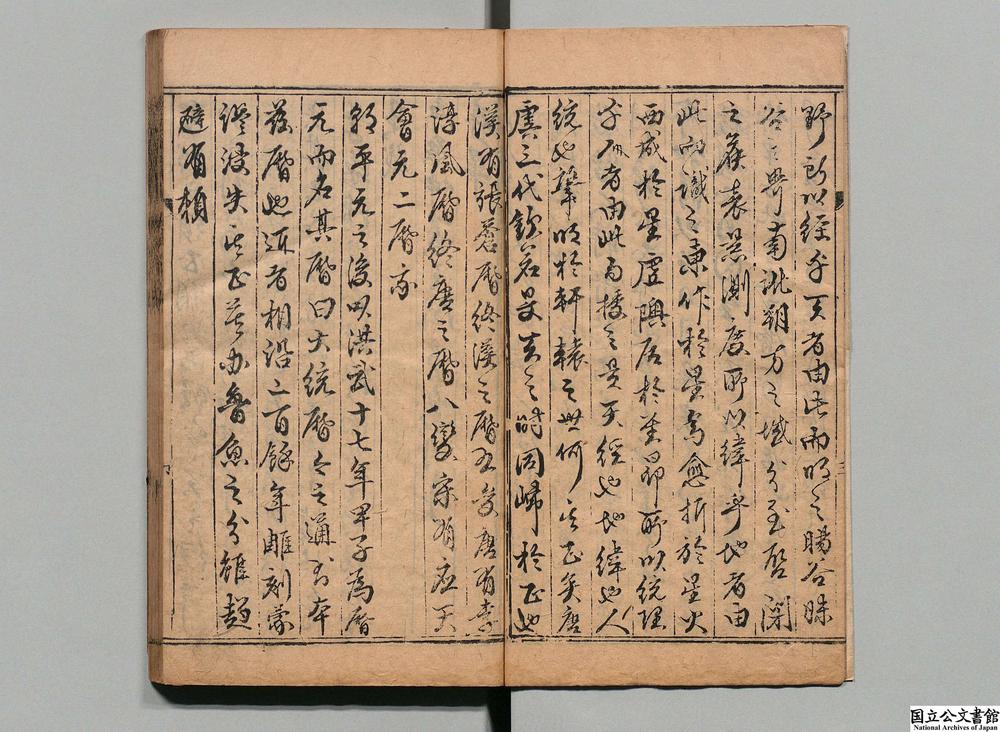 野所以經乎天者由此而明之暘谷昧
谷之界南訛朔方之域分至啓閉
之候表景測度所以緯乎地者由
此而識之東作於星鳥愈析於星火
西成於星虛隩居於星昴所以統理
乎人者由此而授之是天經也地緯也人
統也肇明於軒轅之世何其正矣唐
虞三代欽若昊天之時同歸於正也
漢有張蒼曆終漢之曆五變唐有李
淳風曆終唐之曆八變宋有應天
會元二曆
朝平元之後以洪武十七年甲子為曆
元而名其曆曰大統曆今之通書本
茲曆也近者相沿二百餘年雕刻蒙
謬浸失其正莫辨魯魚之分雖趨
避有賴
国立公文書館
National Archives of Japan